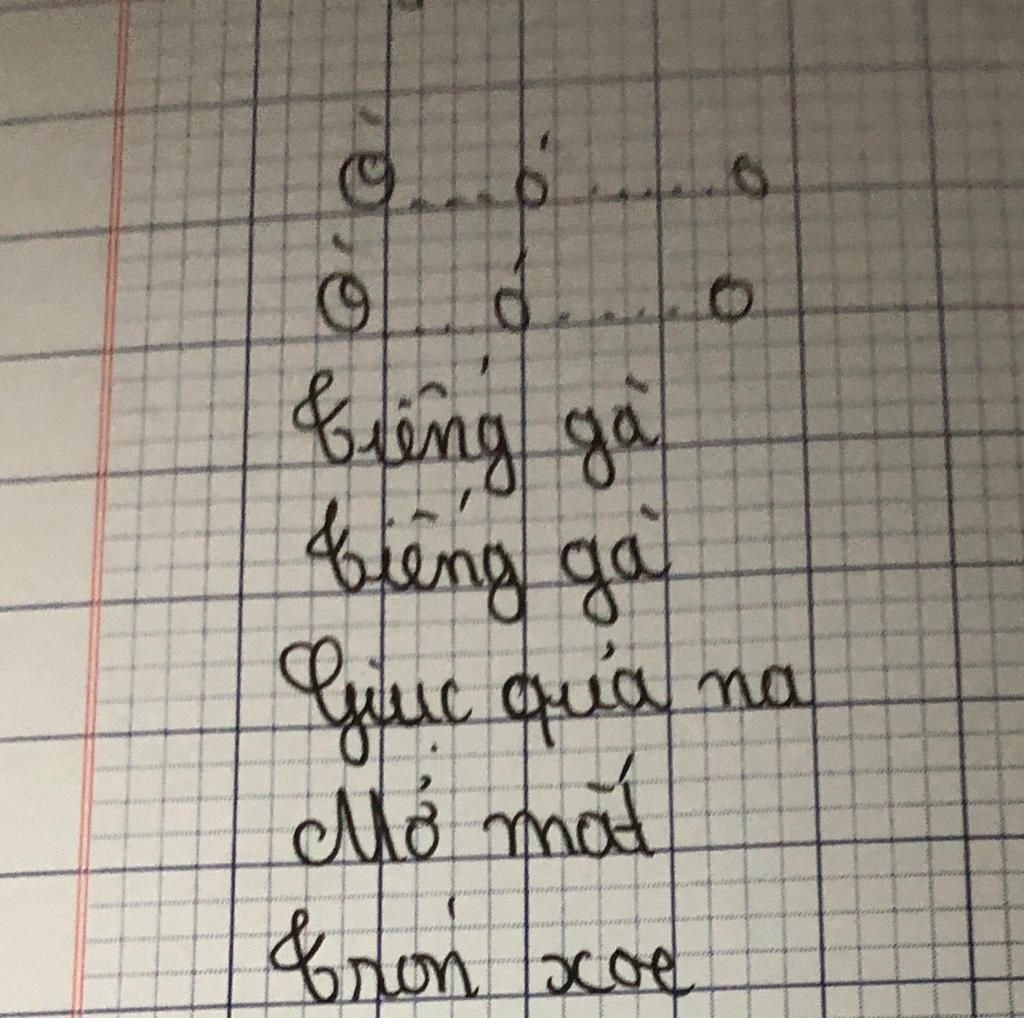 Ò....ó.....o
Ò...ó.....o
Tiếng gà
Tiếng gà
Giục quả na
Mở mắt
Trón xoe